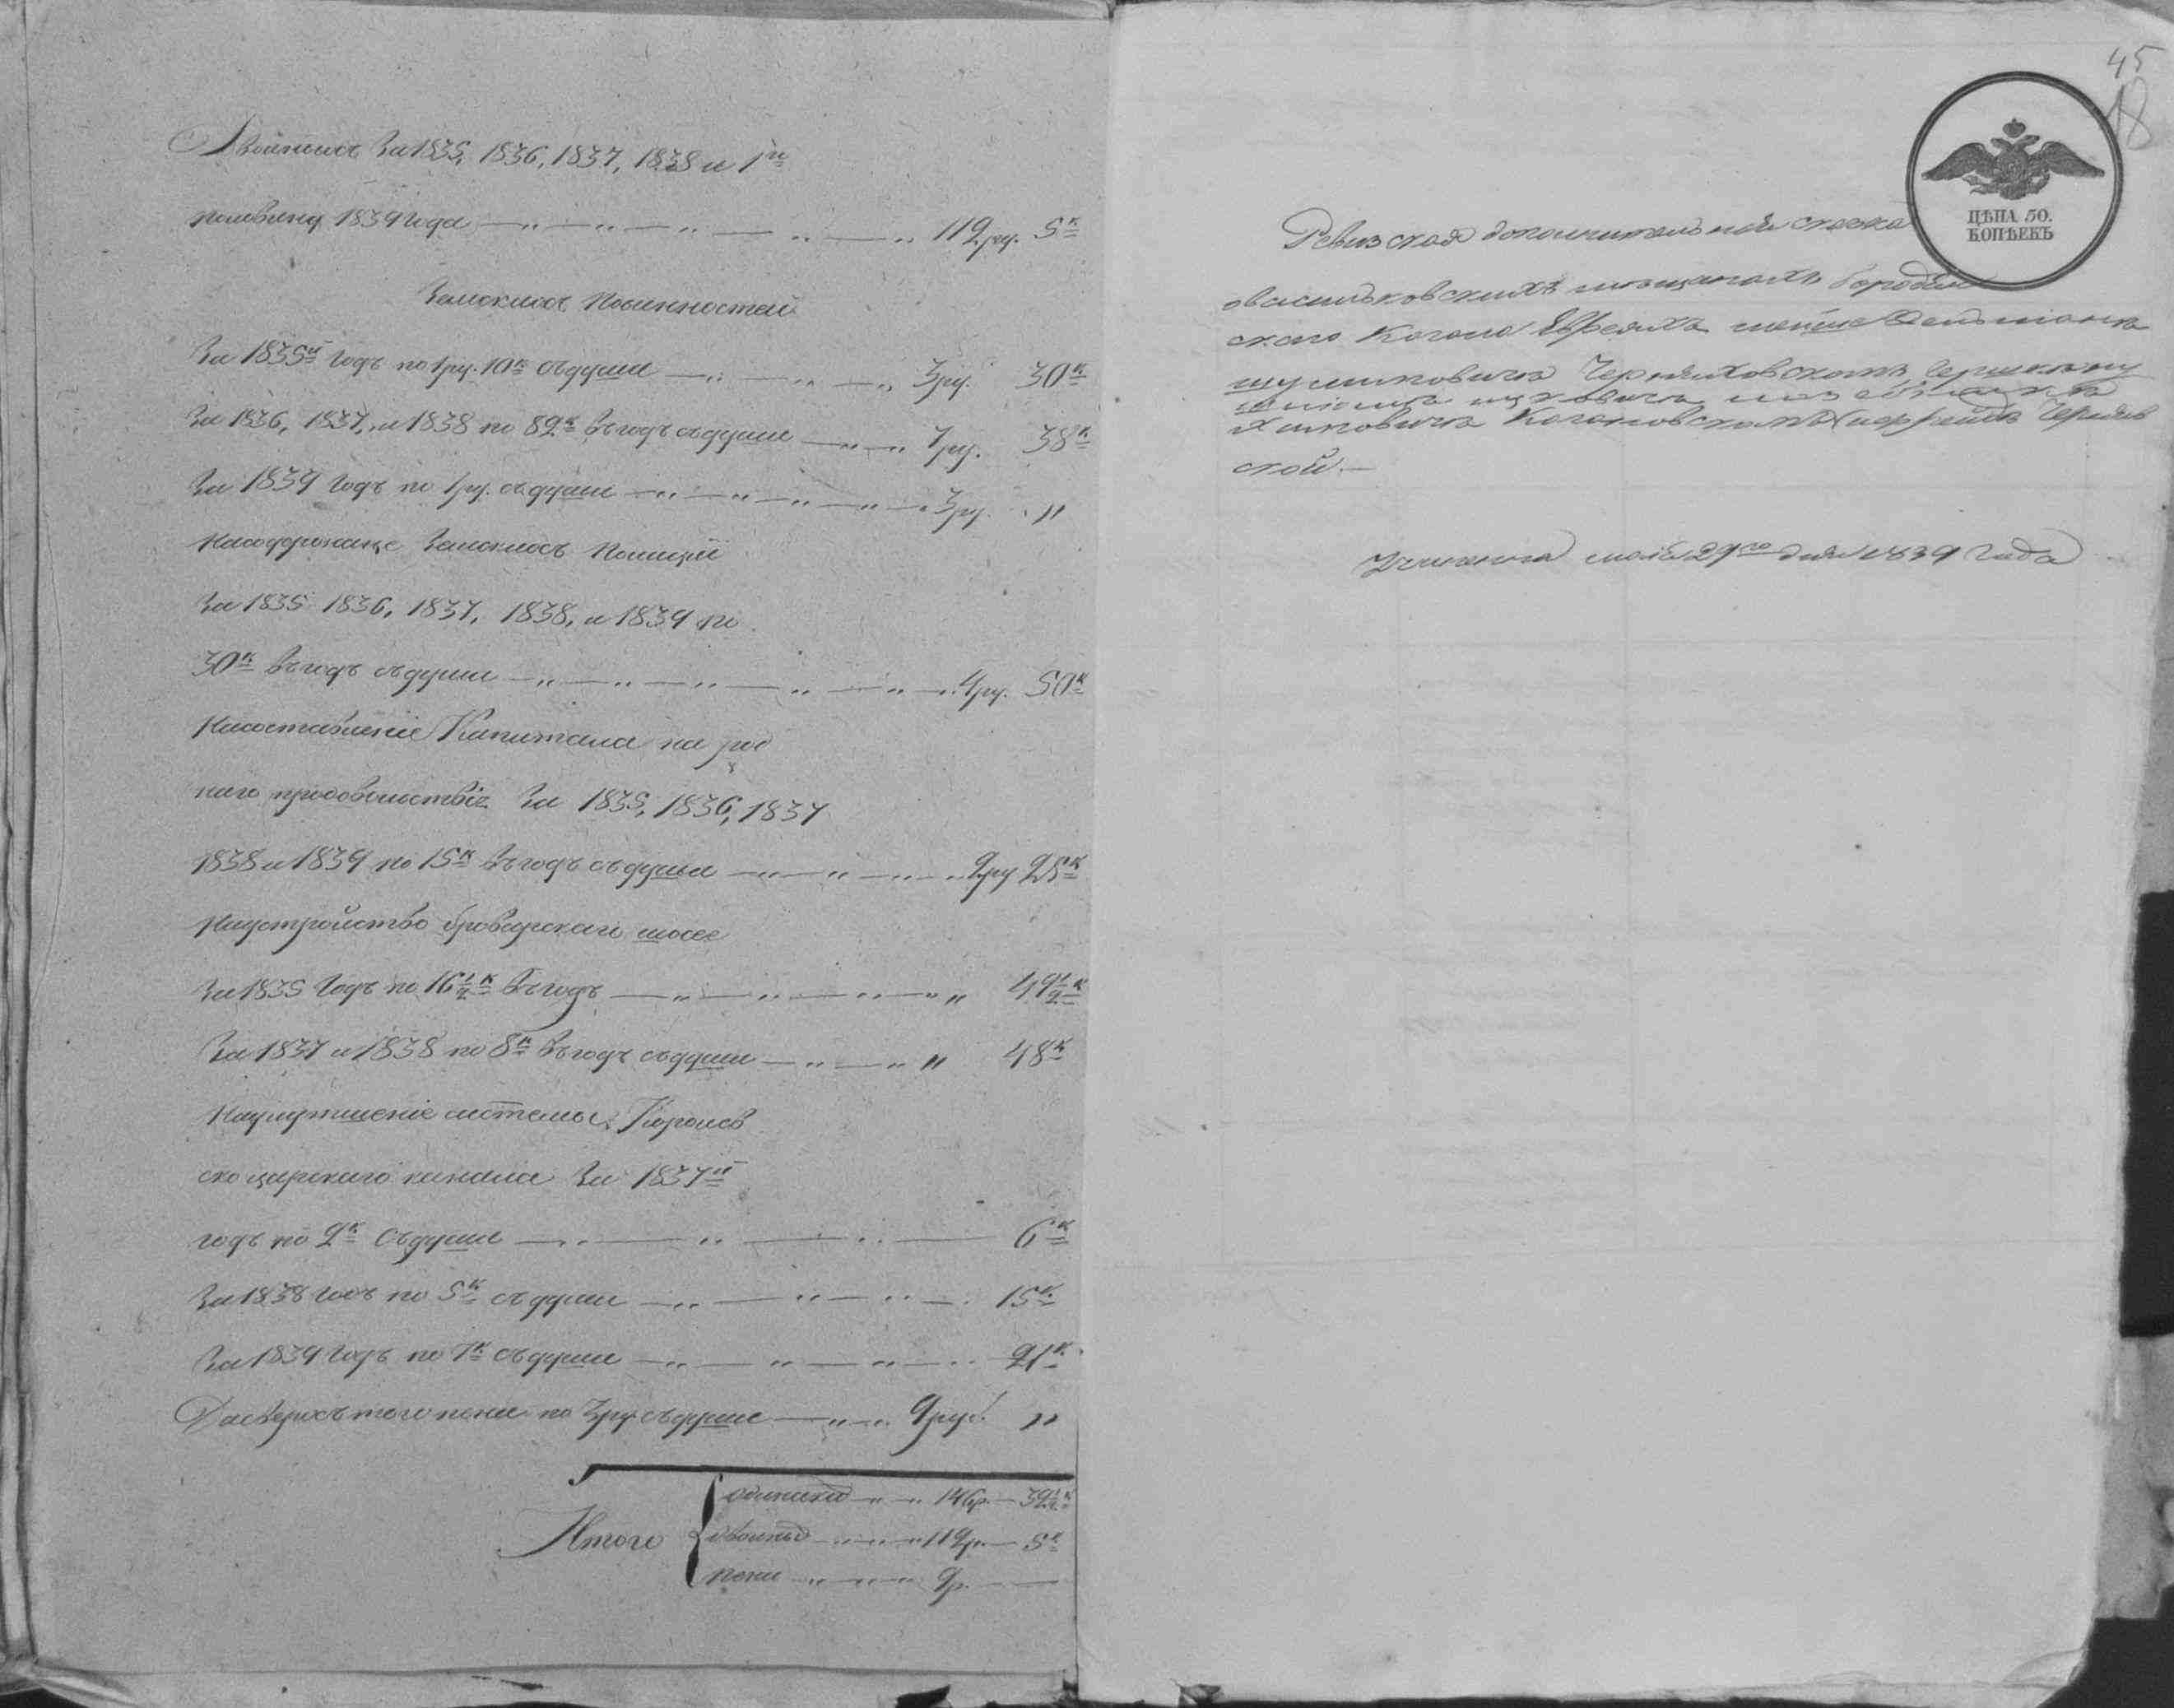 Двойныхъ За 1835, 1836, 1837, 1838 и 1ю
половину 1839 года 112 ру. 5 к
Земскихъ Повинностей
За 1835й годъ по 1 ру. 10 к съ души 3 ру. 30 к
За 1836, 1837, и 1838 по 82 к въ годъ съ души 7 ру. 38 к
За 1839 годъ по 1 ру. съ души 3 ру. "
На содержаніе Земской Полиціи
За 1835 1836, 1837, 1838, и 1839 по
30 к въ годъ съ души 4 ру. 50 к
На составленіе Капитала на род
наго продовольствіе За 1835, 1836, 1837
1838 и 1839 по 15 к въ годъ съ души 2 ру 25 к
На устройство броварскаго шосее
За 1835 годъ по 16 1/2 к въ годъ " 49 1/2 к
За 1837 и 1838 по 8 к въ годъ съ души " 48 к
На улутшеніе системы Королев
ско царскаго канала За 1837й
годъ по 2 к съ души 6 к
За 1838 годъ по 5 к съ души 15 к
За 1839 годъ по 7 к съ души 21 к
Да сверхъ того пени по 3 ру съ души 9 руб. "
Итого
146 р. 32 1/2 к
двойных 112 р. 5 к
пени 9 р.
45
18
ЦѢНА 50.
КОПѢЕКЪ
Ревизская дополнительная сказка
о васильковскихъ мещанахъ
Кагала Евреяхъ
Черняховскомъ
Кагановскомъ
ской.
Учинена 29го дня 1839 года